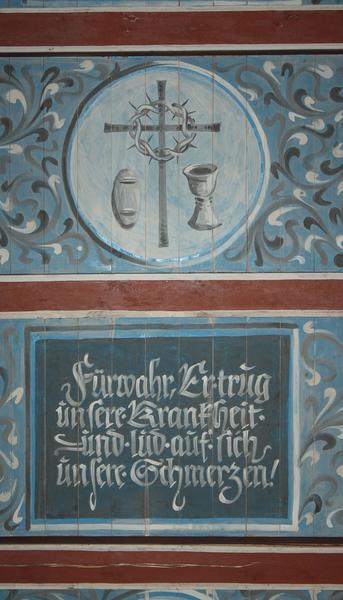 Fürwahr, Er trug
unsere Krankheit·
und·lud·auf·sich
unsere Schmerzen!